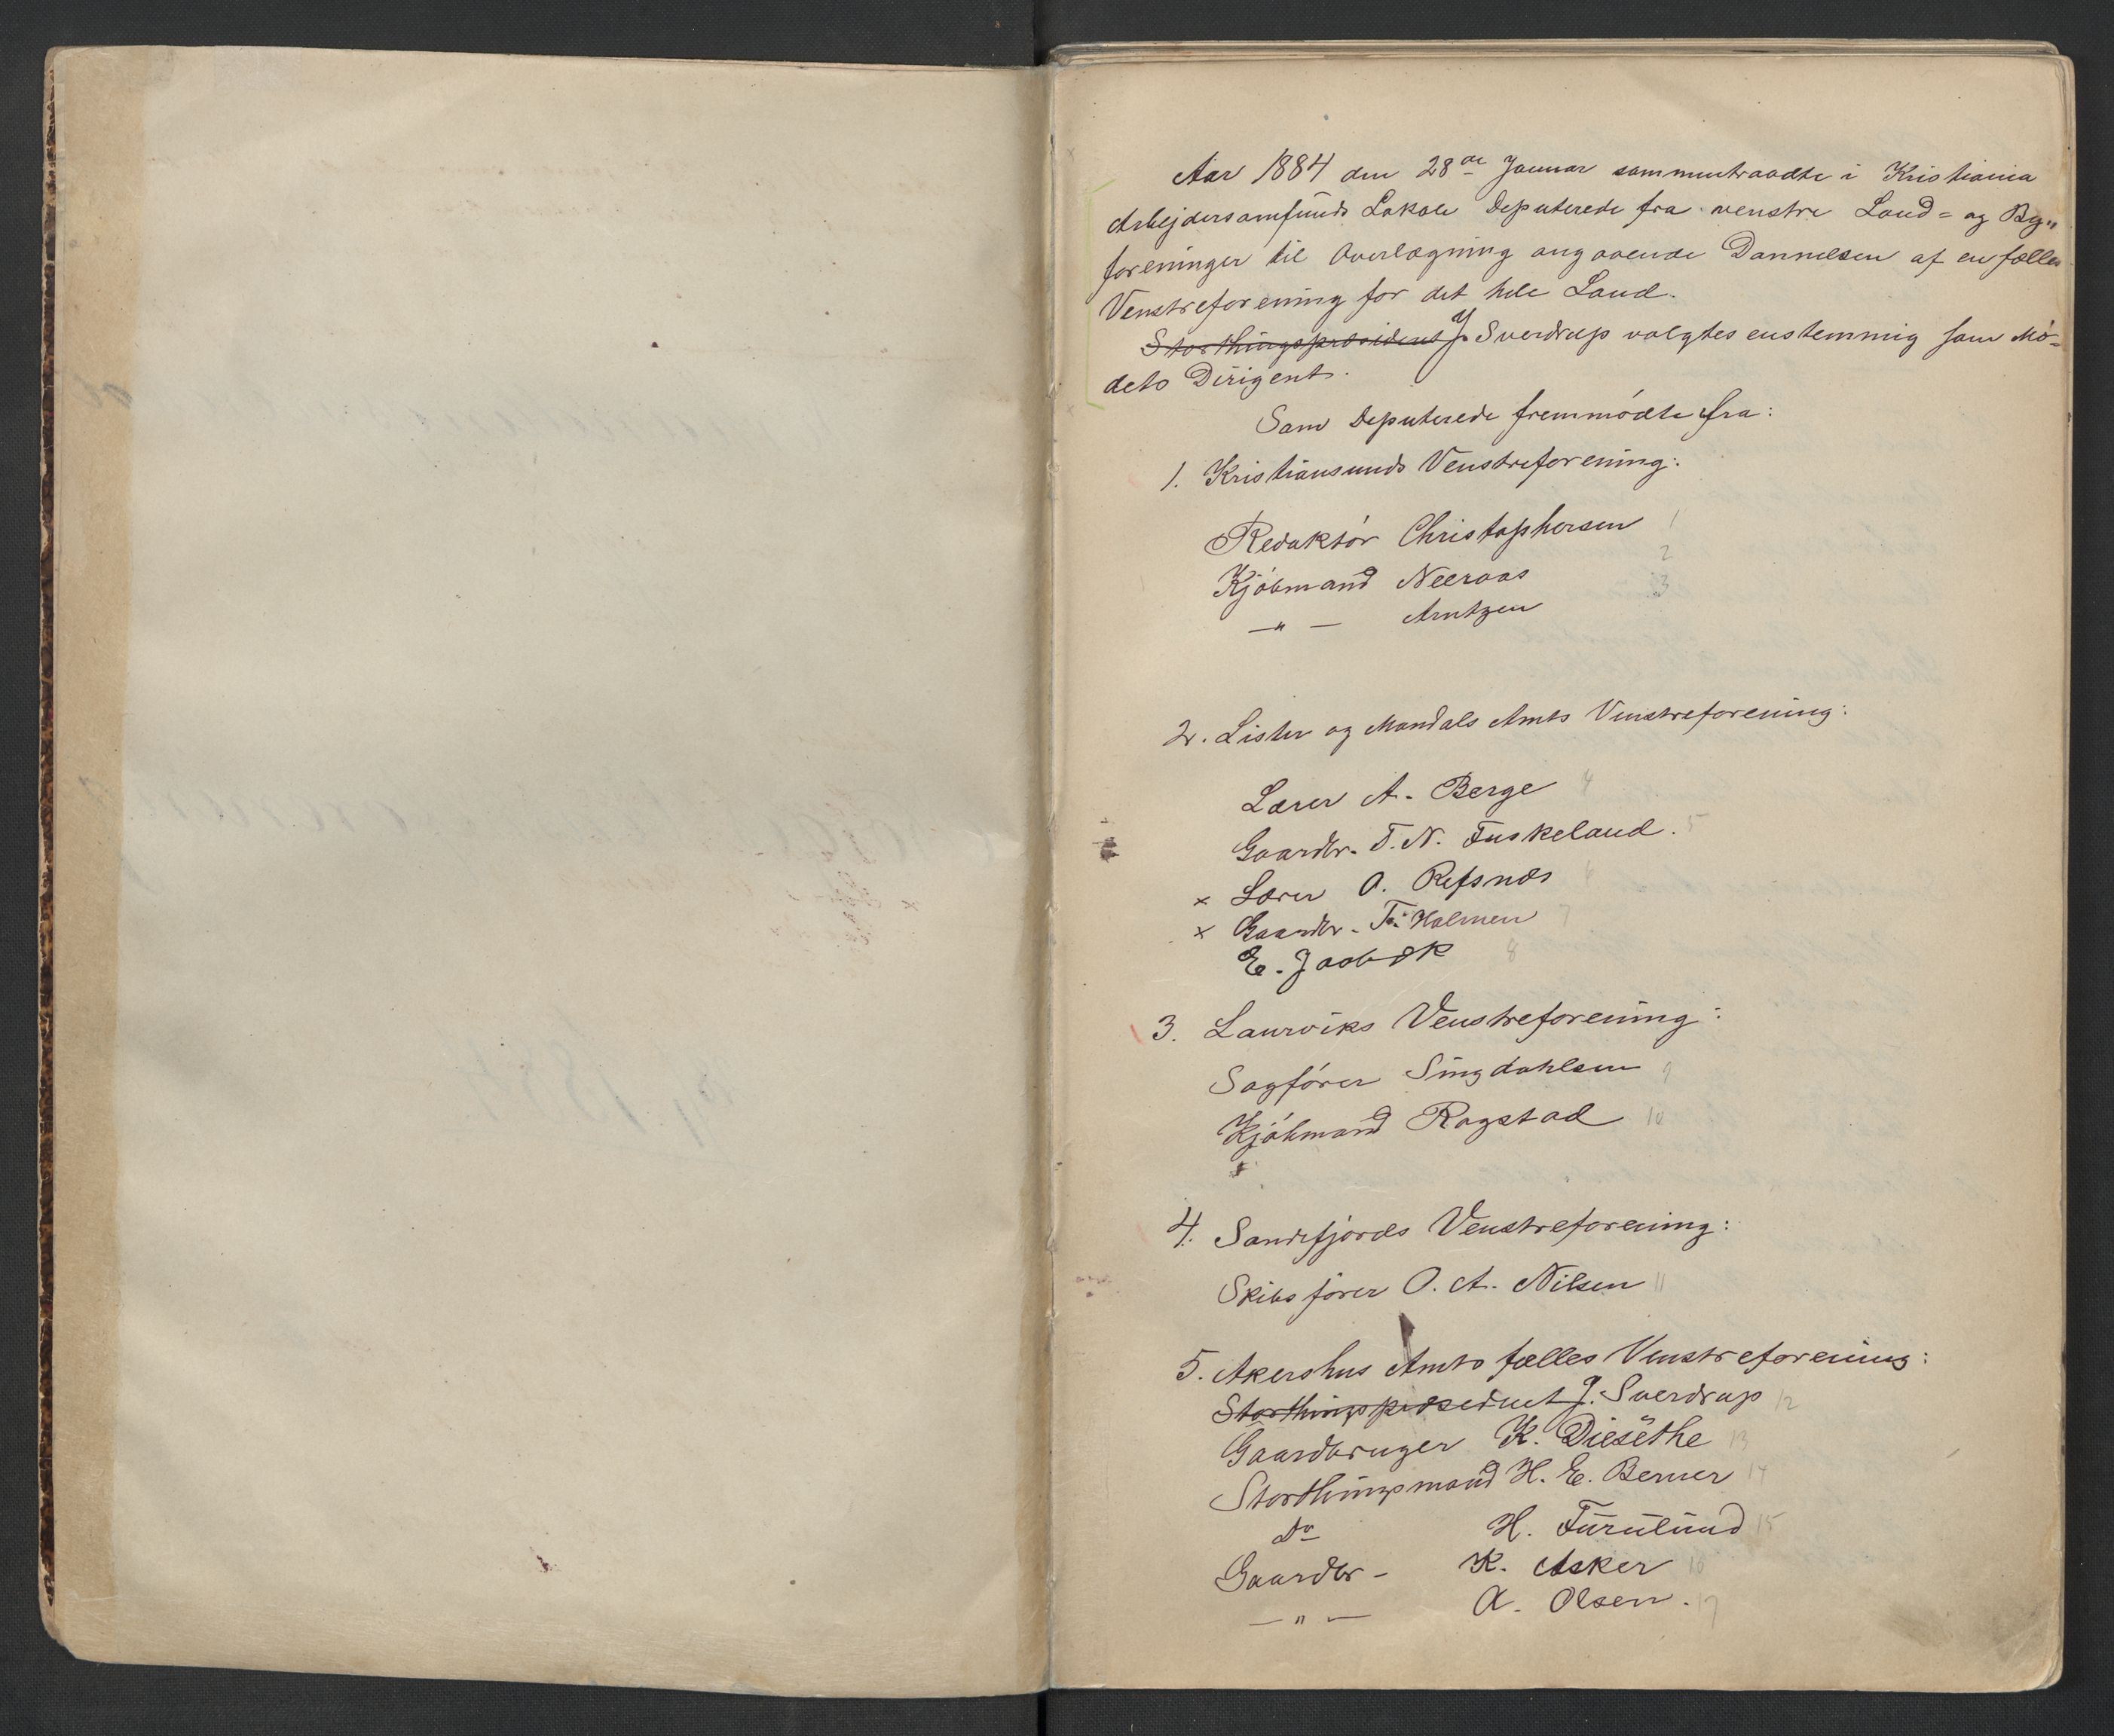 Aar 1884 den 28de Januar sammentraadte i Kristiania
Arbejdersamfunds Lokale Deputerede fra venstre Land= og By„
foreninger til Overlægning angaaende Dannelsen af en fælles
Venstreforening for det hele Land.
Storthingspræsident J. Sverdrup valgtes enstemmig som Mö=
dets Dirigent.
Som Deputerede fremmödte fra:
1. Kristiansunds Venstreforening:
Redaktör Christophersen 1
2
Kjöbmand Neeraas 3
—„— Arntzen
2. Lister og Mandals Amts Venstreforening:
Lærer A. Berge 4
Gaardbr. T. N. Fuskeland. 5
x Lærer O. Refsnæs 6
x Gaardbr. T. Holmen 7
E. Jaabæk 8
3. Laurviks Venstreforening:
Sagförer Singdahlsen 9
Kjöbmand Rogstad 10
4. Sandefjords Venstreforening:
Skibsförer O. A. Nilsen 11
5. Akershus Amts fælles Venstreforening:
Storthingspræsident J. Sverdrup 12
Gaardbruger K. Diesethe 13
Storthingsmand H. E. Berner 14
Do H. Furulund 15
Gaardbr - K. Asker 16
—„— A. Olsen. 17